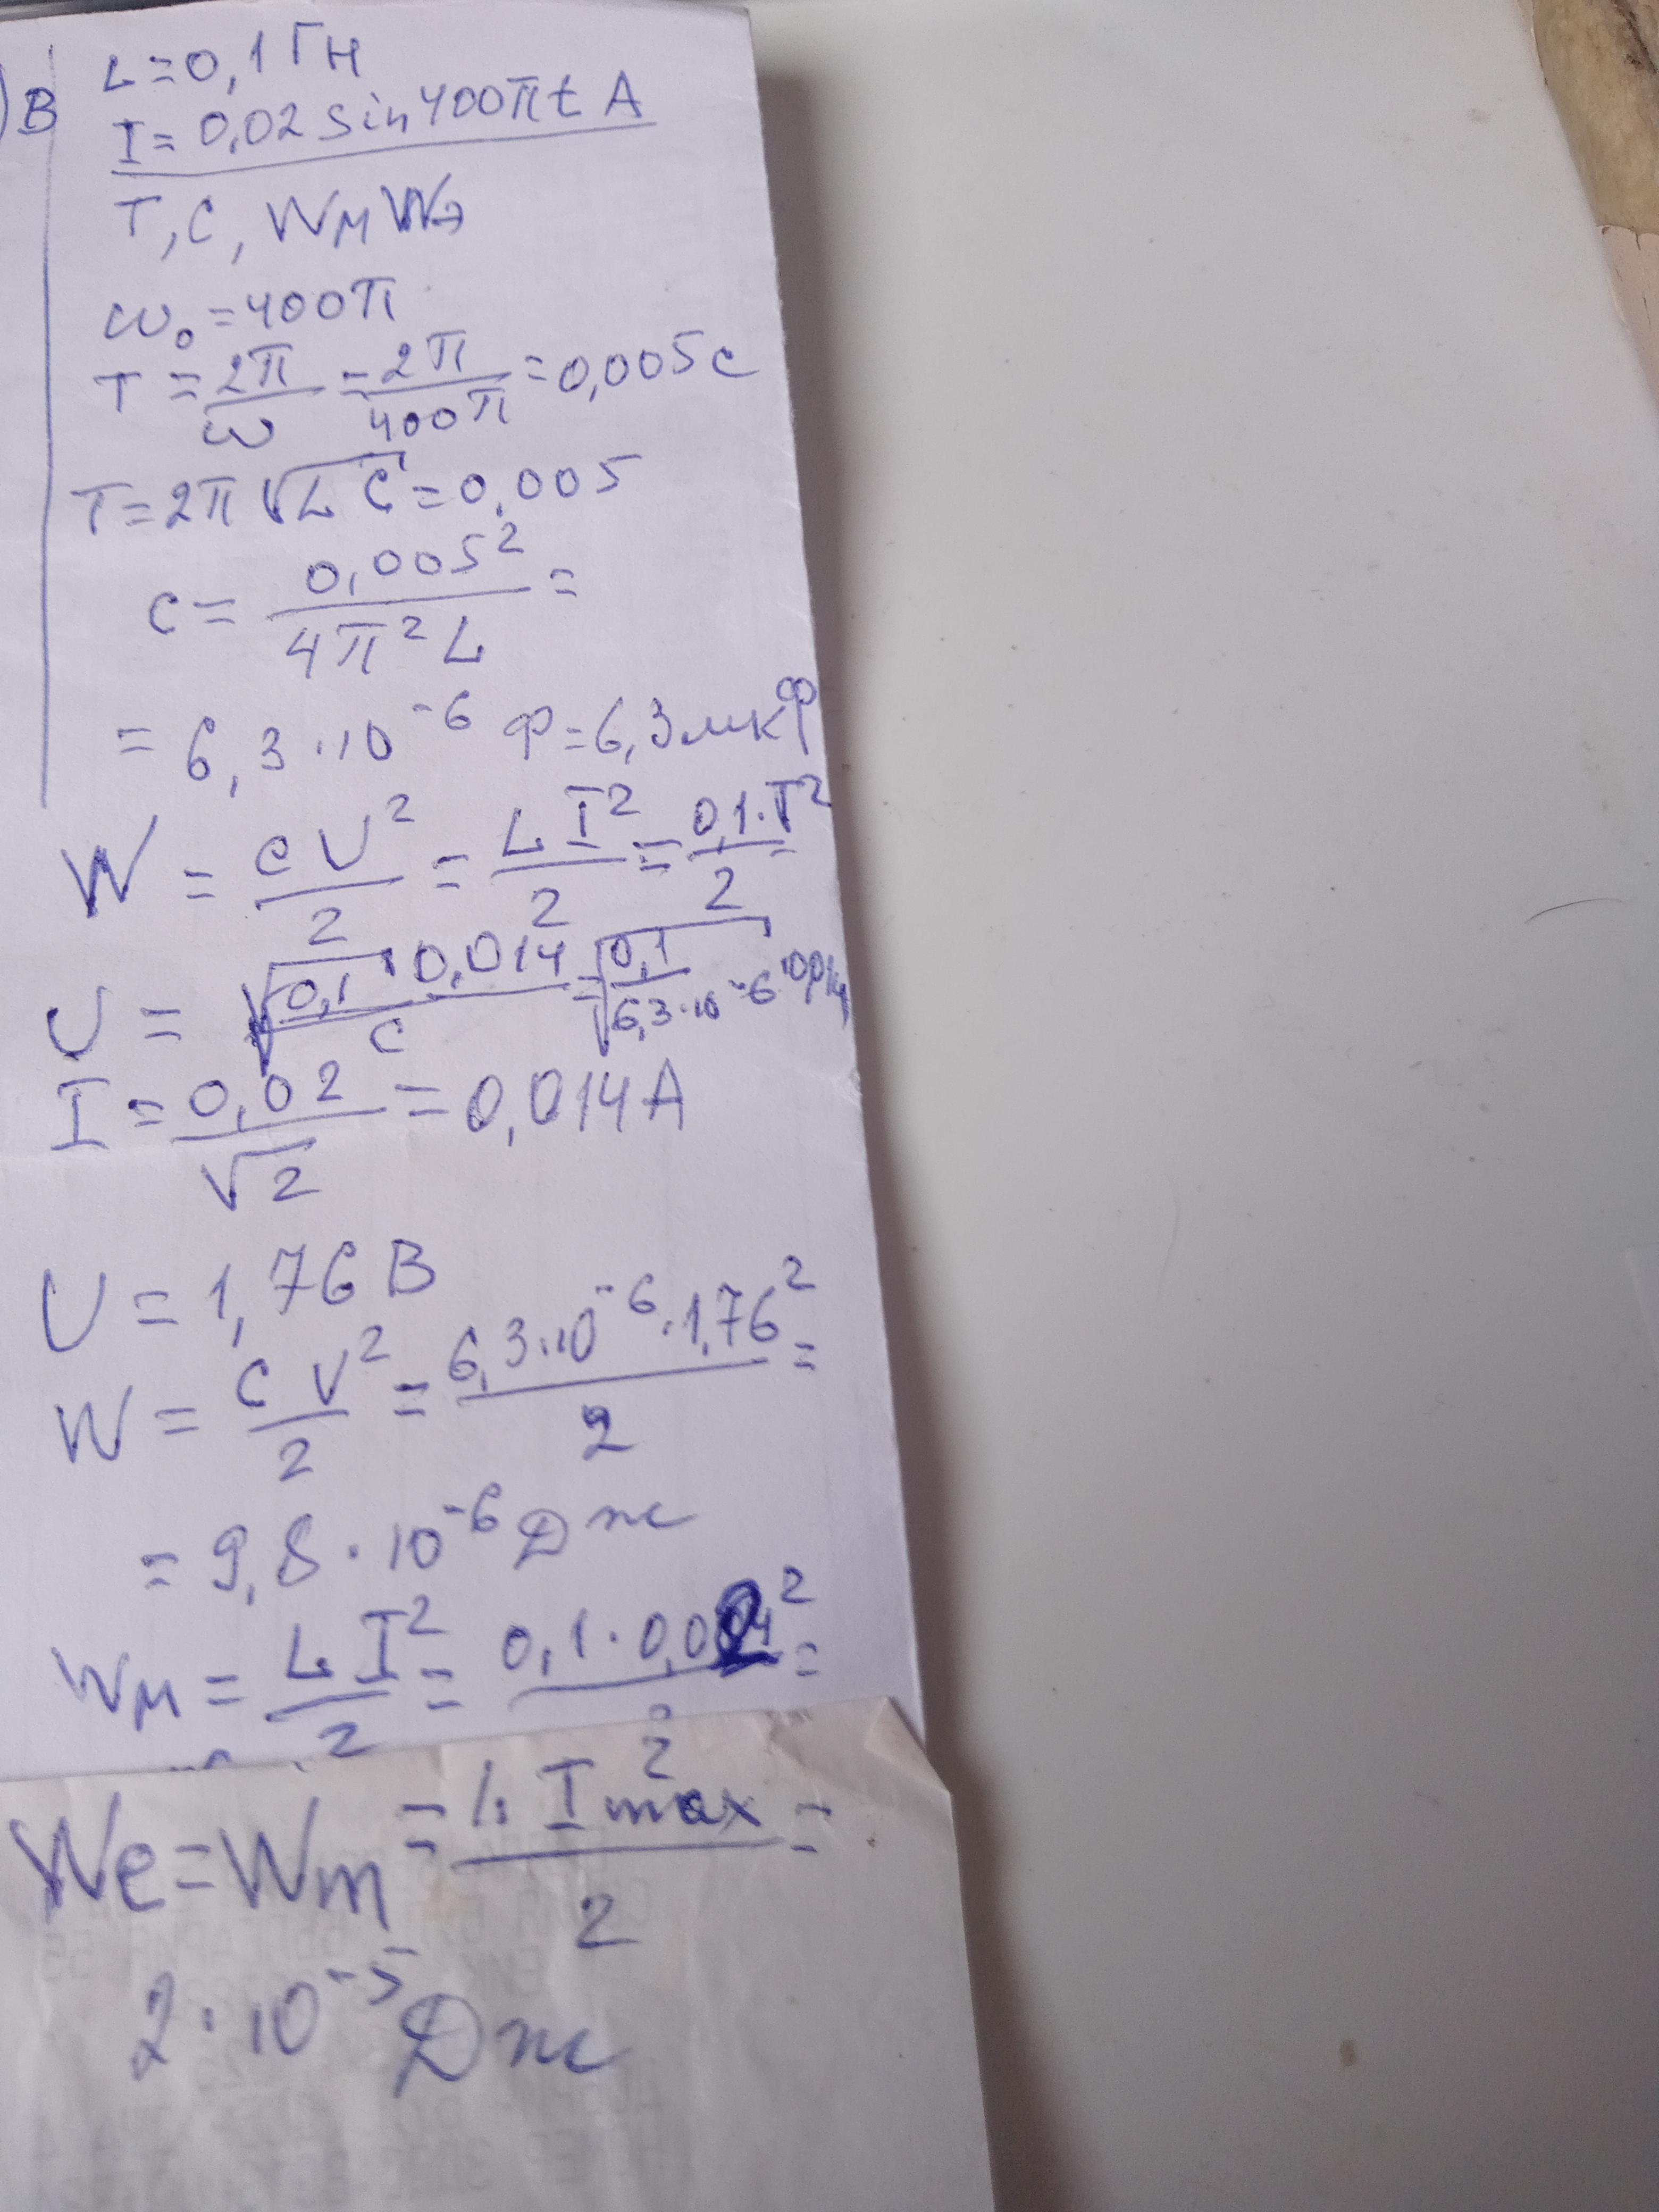 В
L=0,1 Гн
I=0,02 sin 400πt A
T, C, Wм Wэ
ω₀=400π
T = 2π/ω = 2π/400π = 0,005 c
T=2π√LC=0,005
C= 0,005²/4π²L =
= 6,3·10⁻⁶ Ф=6,3мкФ
W = CU²/2 = LI²/2 = 0,1·I²/2
U = √0,1/C · 0,014 = √0,1/6,3·10⁻⁶ ·0,014
I = 0,02/√2 = 0,014 A
U = 1,76 В
W = CU²/2 = 6,3·10⁻⁶·1,76²/2 =
= 9,8·10⁻⁶ Дж
Wм = LI²/2 = =
We=Wm = L Imax²/2 =
2·10⁻⁵ Дж